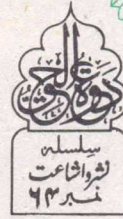 دعوة الحق
سلسلہ
نشر و اشاعت
نمبر ۶۴